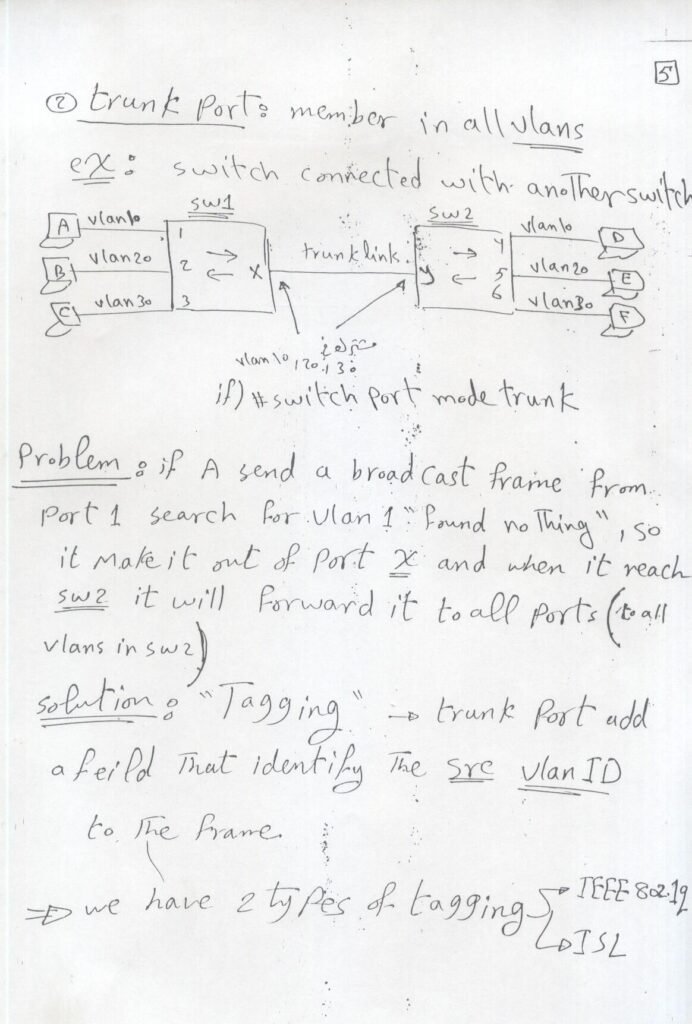 5
② trunk port: member in all vlans
ex: switch connected with another switch
sw1
sw2
A vlan10 1
B vlan20 2 x
C vlan30 3
trunk link
4 vlan10 D
y 5 vlan20 E
6 vlan30 F
vlan 10, 20, 30
if) # switch port mode trunk
Problem: if A send a broad cast frame from
port 1 search for vlan 1 "found no Thing", so
it make it out of port x and when it reach
sw2 it will forward it to all ports (to all
vlans in sw2)
solution: "Tagging" → trunk port add
a feild That identify The src vlan ID
to The frame.
⇒ we have 2 types of tagging → IEEE 802.1q
→ ISL